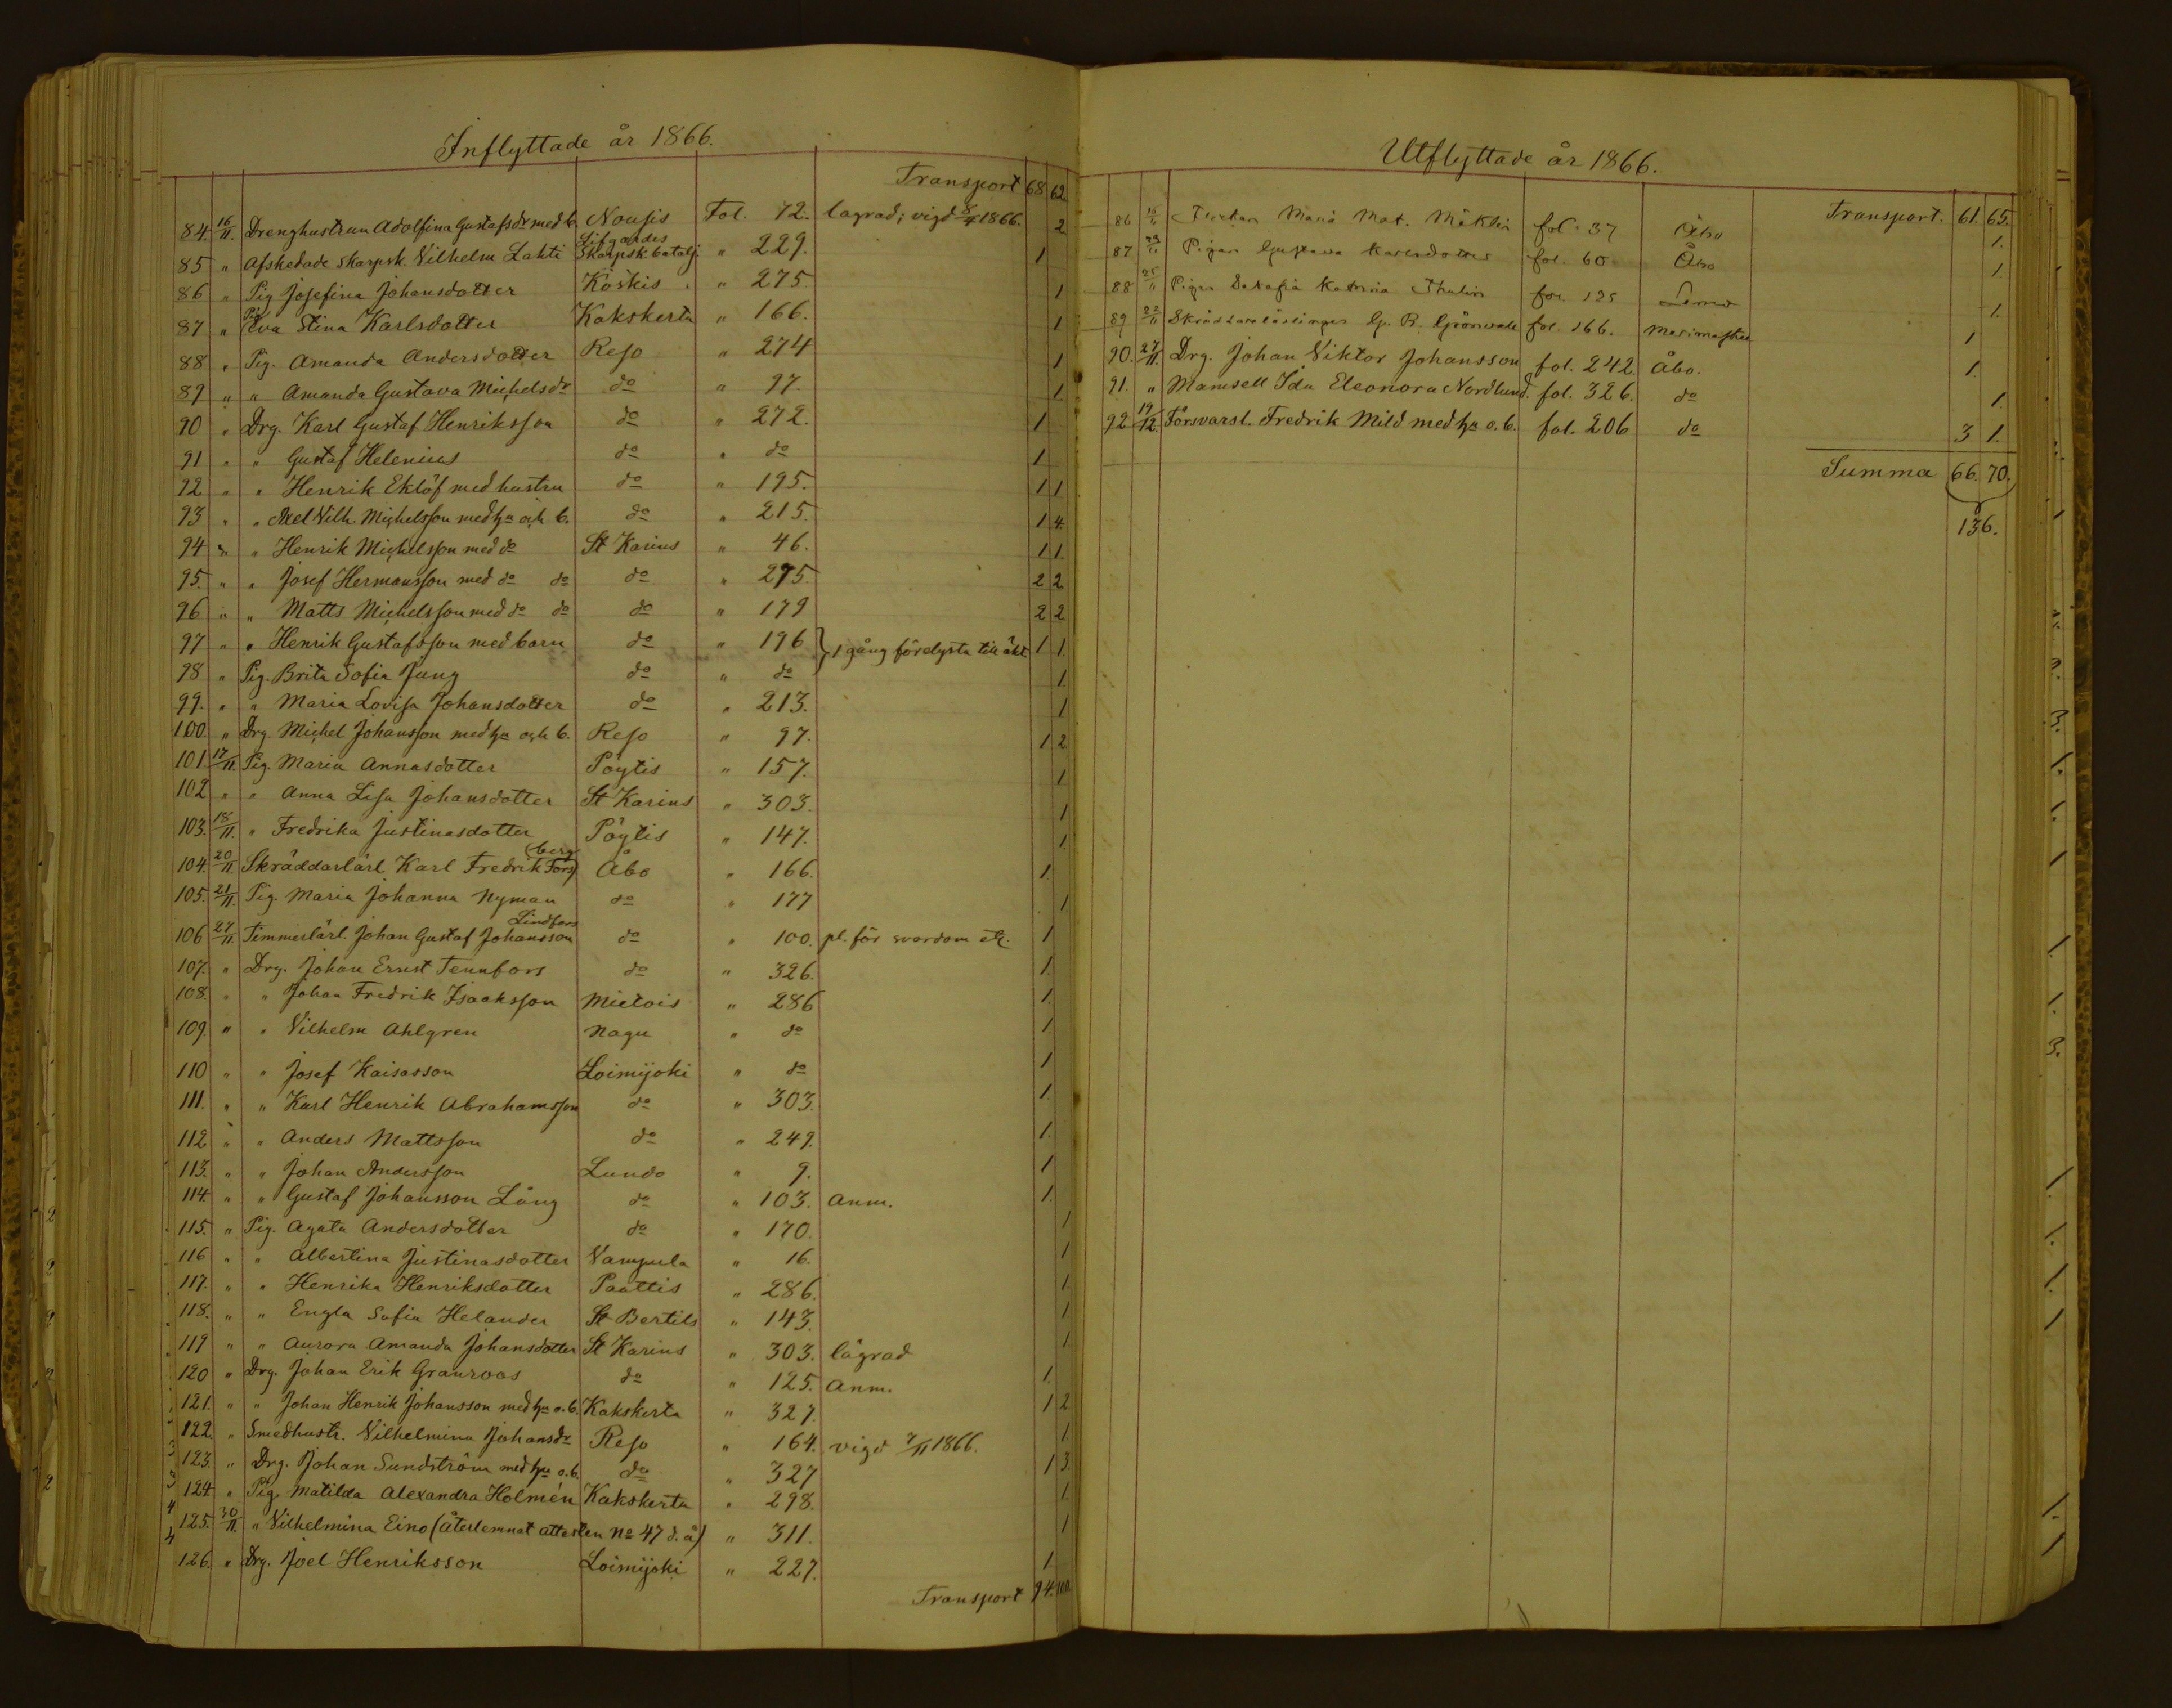 Inflyttade år 1866.
Transport 68 62.
84. 16/11. Drenghustrun Adolfina Gustafsdr med b. Nousis Fol. 72. lagrad; vigd 8/4 1866. 2
85 " Afskedade skarpsk. Vilhelm Lahti Lifgardes Skarpsk. batalj. " 229. 1
86 " Pig Josefina Johansdotter Koskis " 275. 1
87 " Pig Eva Stina Karlsdotter Kakskerta " 166. 1
88 " Pig. Amanda Andersdotter Reso " 274 1
89 " " Amanda Gustava Michelsdr do " 97. 1
90 " Drg. Karl Gustaf Henriksson do " 272. 1
91 " " Gustaf Helenius do " do 1
92 " " Henrik Eklöf med hustru do " 195. 1 1
93 " " Axel Vilh. Michelsson med hu och b. do " 215. 1 4.
94 " " Henrik Michelsson med do St Karins " 46. 1 1.
95. " " Josef Hermansson med do do do " 275. 2 2
96 " " Matts Michelsson med do do do " 179 2 2
97 " " Henrik Gustafsson med barn do " 196 } 1 gång förelysta till äkt. 1 1.
98 " Pig. Brita Sofia Jung do " do 1.
99. " " Maria Lovisa Johansdotter do " 213. 1
100. " Drg. Michel Johansson med hu och b. Reso " 97. 1 2
101. 17/11. Pig. Maria Annasdotter Pöytis " 157. 1
102 " " Anna Lisa Johansdotter St Karins " 303. 1
103. 18/11. " Fredrika Justinasdotter Pöytis " 147. 1.
104. 20/11. Skräddarlärl. Karl Fredrik Fors(berg) Åbo " 166. 1
105. 21/11. Pig. Maria Johanna Nyman do " 177 1.
106 27/11. Timmerlärl. Johan Gustaf Johansson Lindfors do " 100. pl. för svordom etc. 1
107. " Drg. Johan Ernst Tennfors do " 326. 1.
108. " " Johan Fredrik Isaaksson Mietois " 286 1.
109. " " Vilhelm Ahlgren Nagu " do 1
110 " " Josef Kaisasson Loimijoki " do 1
111. " " Karl Henrik Abrahamsson do " 303. 1.
112 " " Anders Mattsson do " 249. 1.
113. " " Johan Andersson Lundo " 9. 1
114. " " Gustaf Johansson Lång do " 103. Anm. 1.
115. " Pig. Agata Andersdotter do " 170. 1
116 " " Albertina Justinasdotter Vampula " 16. 1
117. " " Henrika Henriksdotter Paattis " 286. 1
118. " " Engla Sofia Helander St Bertils " 143. 1
119 " " Aurora Amanda Johansdotter St Karins " 303. lägrad 1
120 " Drg. Johan Erik Granroos do " 125. Anm. 1.
121. " " Johan Henrik Johansson med hu o. b. Kakskerta " 327. 1 2
122. " Smedhustr. Vilhelmina Johansdr Reso " 164. vigd 7/11 1866. 1
123. " Drg. Johan Sundström med hu o. b. do " 327 1 3.
124 " Pig. Matilda Alexandra Holmén Kakskerta " 298. 1.
125. 30/11. " Vilhelmina Eino (återlemnat attesten No 47 d. å) " 311. 1
126. " Drg. Joel Henriksson Loimijoki " 227. 1.
Transport 94. 100.
Utflyttade år 1866.
Transport. 61. 65.
86 15/11 Maria Mat. Mäklin fol. 37 Åbo 1.
87 Pigan Gustava Karlsdotter fol. 60 Åbo 1.
88 Pigan Katarina Thulin fol. 125 Lemo 1.
89 22/11 Skräddarelärlingen G. R. Grönvall fol. 166. Merimasku 1
90. 27/11. Drg. Johan Viktor Johansson fol. 242. Åbo. 1.
91. " Mamsell Ida Eleonora Nordlund. fol. 326. do 1.
92 19/12. Försvarsl. Fredrik Mild med hu o. b. fol. 206 do 3 1.
Summa 66. 70.
136.